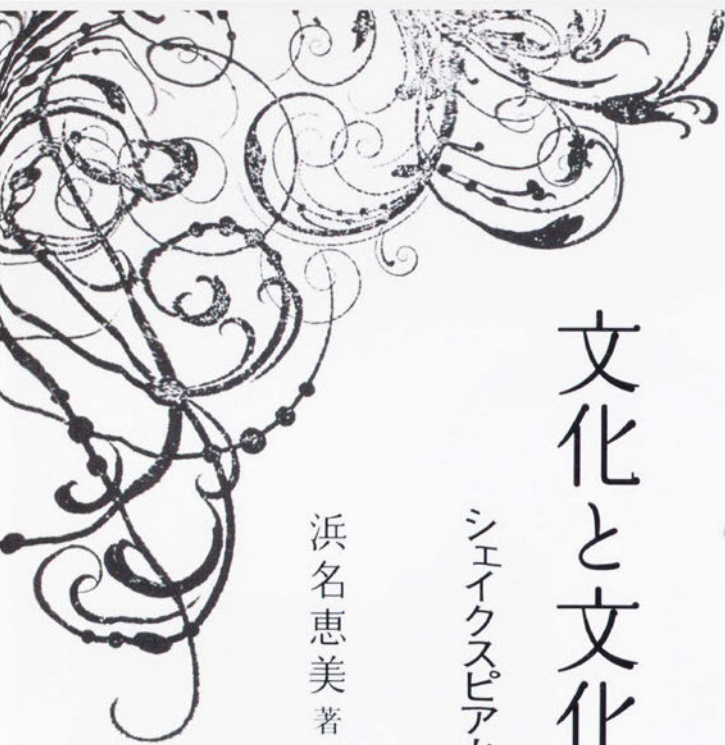 文化と文化
シェイクスピア
浜名恵美 著